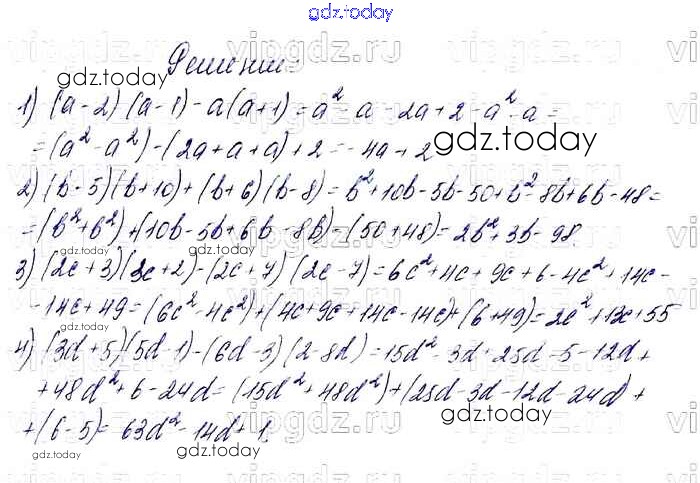 gdz.today
Решение:
gdz.today
1) (a-2)(a-1)-a(a+1)=a²-a-2a+2-a²-a=
=(a²-a²)-(2a+a+a)+2=-4a+2
gdz.today
2) (b-5)(b+10)+(b+6)(b-8)=b²+10b-5b-50+b²-8b+6b-48=
=(b²+b²)+(10b-5b+6b-8b)-(50+48)=2b²+3b-98.
gdz.today
gdz.today
gdz.today
3) (2c+3)(3c+2)-(2c+7)(2c-7)=6c²+4c+9c+6-4c²+14c-
-14c+49=(6c²-4c²)+(4c+9c+14c-14c)+(6+49)=2c²+13c+55
gdz.today
4) (3d+5)(5d-1)-(6d-3)(2-8d)=15d²-3d+25d-5-12d+
+48d²+6-24d=(15d²+48d²)+(25d-3d-12d-24d)+
gdz.today
gdz.today
+(6-5)=63d²-14d+1.
gdz.today
gdz.today